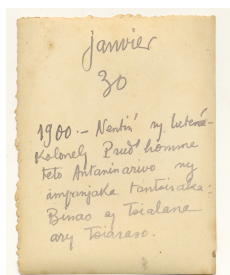 janvier
30
1900:- Nentin' ny lieutenà-
Kolonely Prud'homme
teto Antananarivo ny
ampanjaka tantsisaka:
Binao sy Tsialana
ary Tsiaraso.